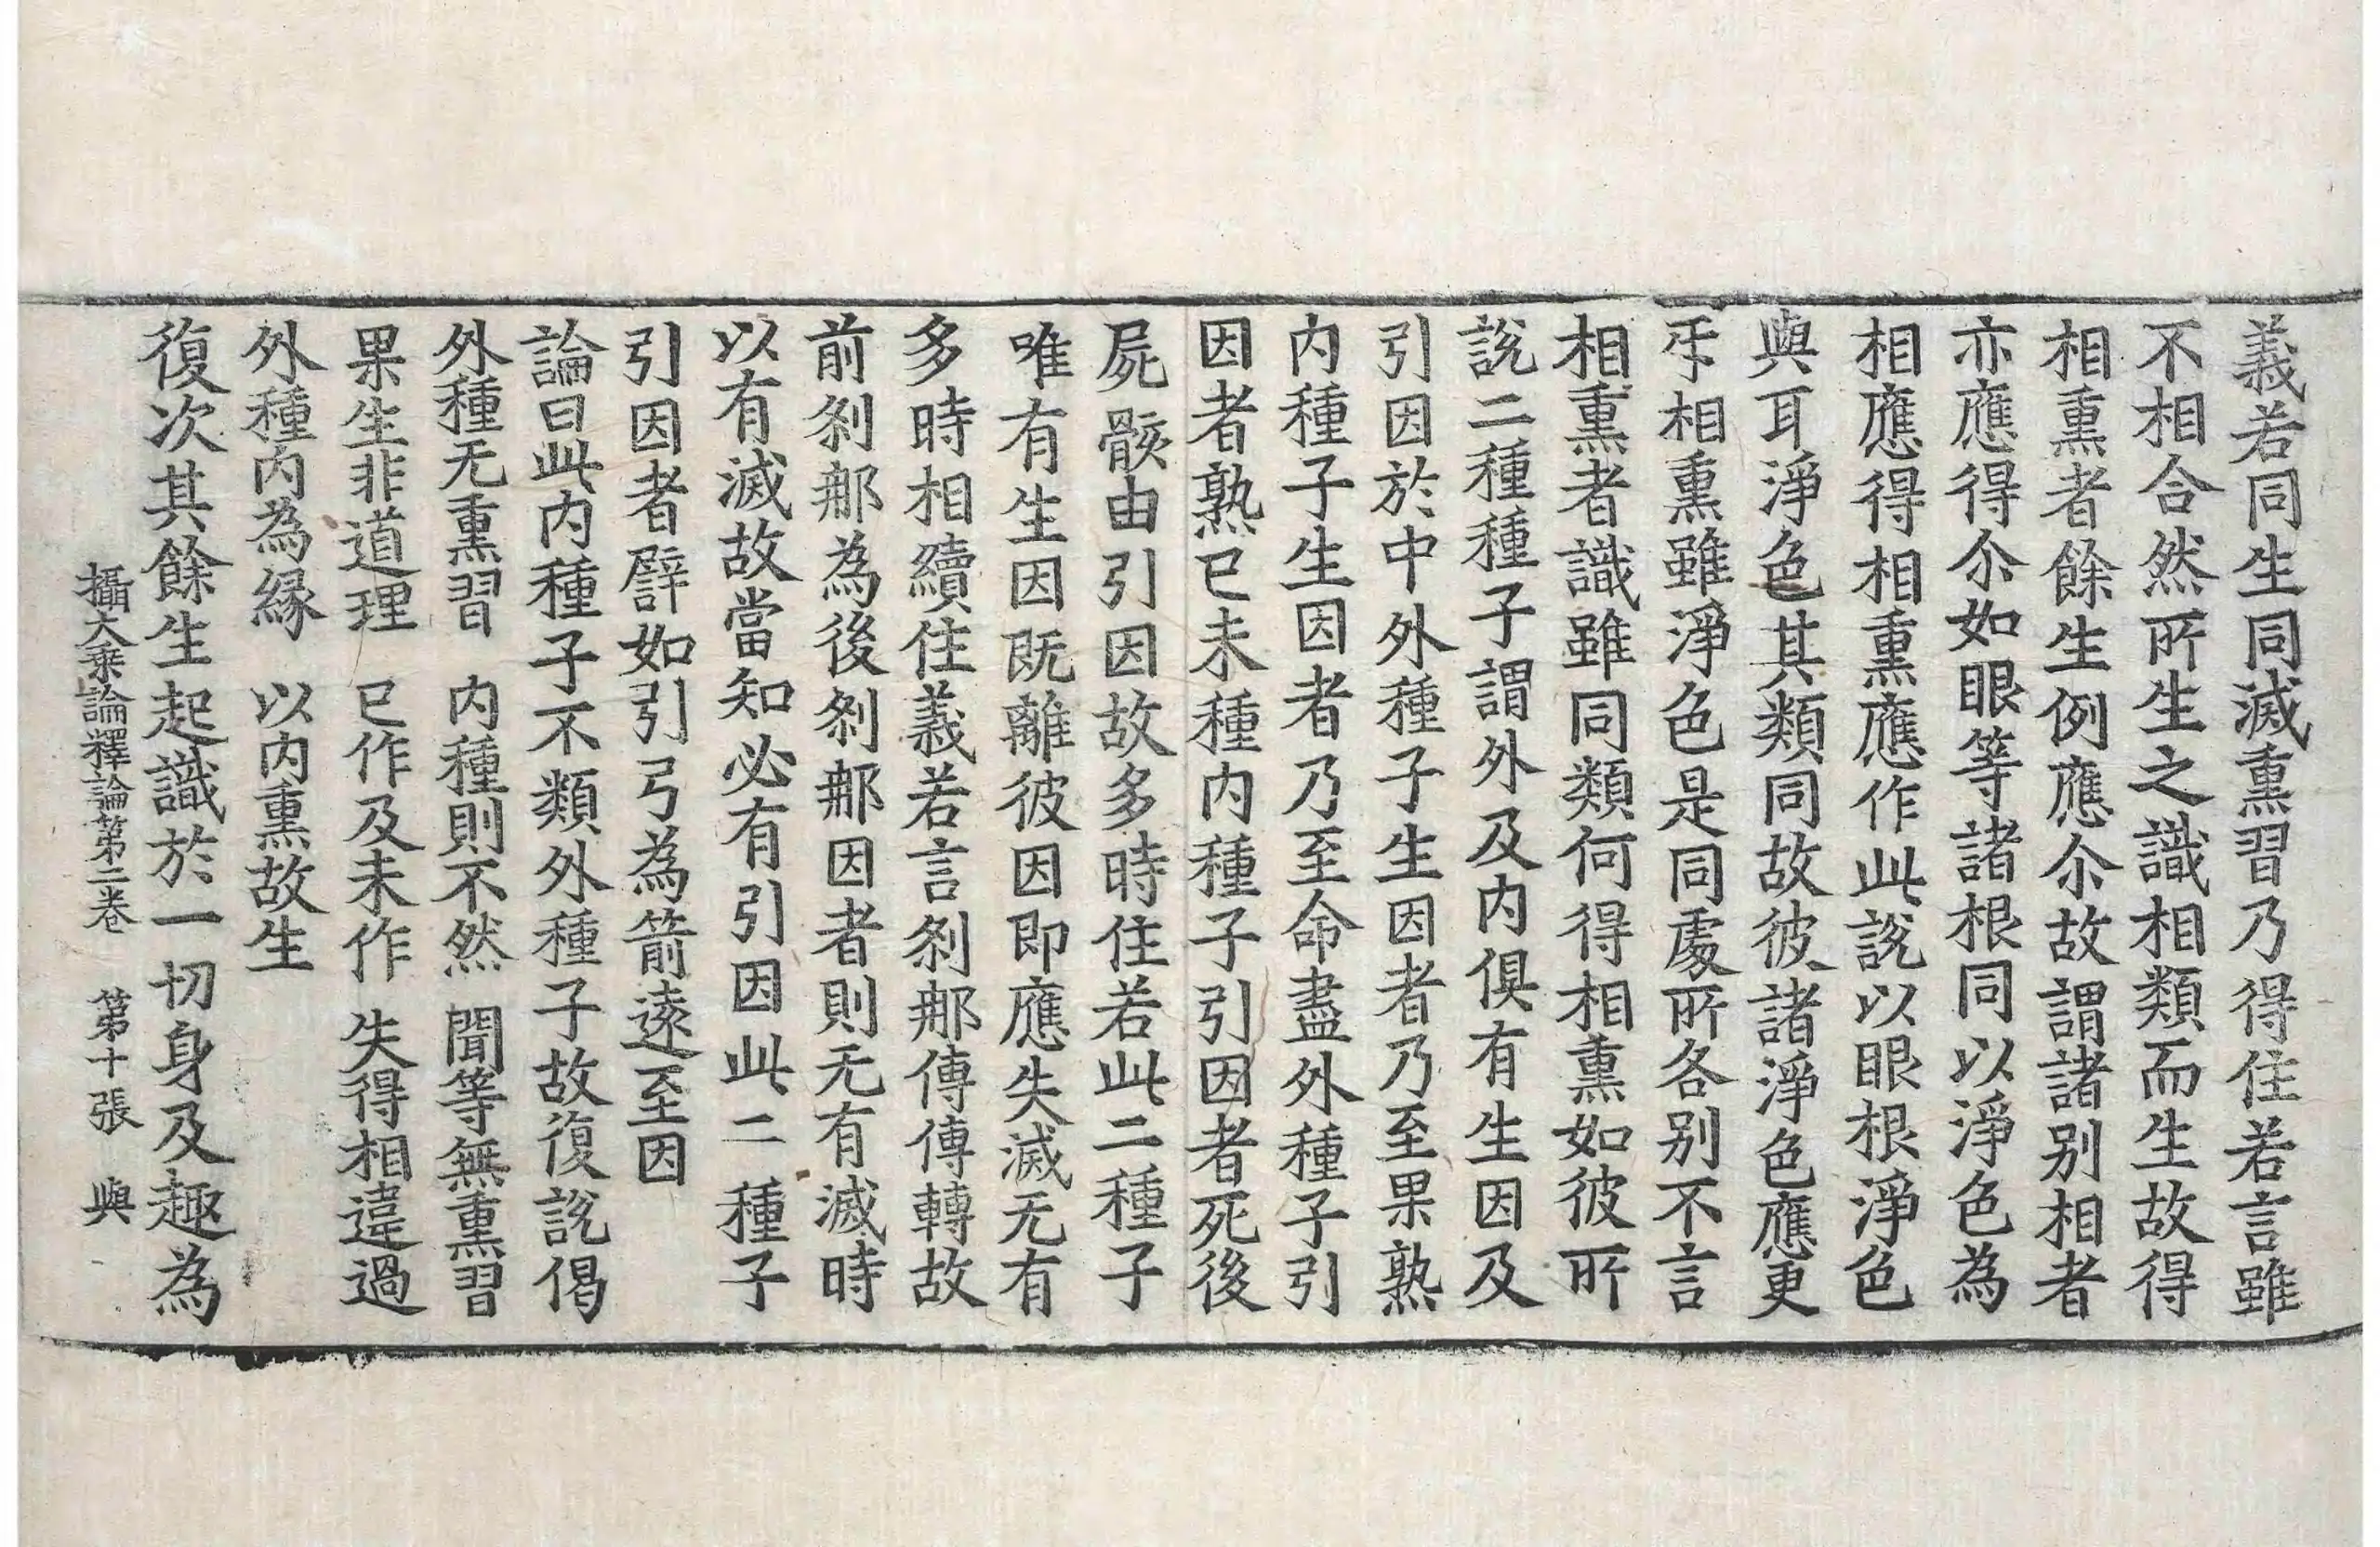 義若同生同滅熏習乃得住若言雖
不相合然所生之識相類而生故得
相熏者餘生例應尒故謂諸別相者
亦應得尒如眼等諸根同以淨色為
相應得相熏應作此說以眼根淨色
與耳淨色其類同故彼諸淨色應更
㸦相熏雖淨色是同處所各別不言
相熏者識雖同類何得相熏如彼所
說二種種子謂外及內俱有生因及
引因於中外種子生因者乃至果熟
內種子生因者乃至命盡外種子引
因者熟已未種內種子引因者死後
屍骸由引因故多時住若此二種子
唯有生因既離彼因即應失滅无有
多時相續住義若言剎那傳傳轉故
前剎那為後剎那因者則无有滅時
以有滅故當知必有引因此二種子
引因者譬如引弓為箭遠至因
論曰此內種子不類外種子故復說偈
外種无熏習　內種則不然　聞等無熏習
果生非道理　已作及未作　失得相違過
外種內為緣　以內熏故生
復次其餘生起識於一切身及趣為
攝大乘論釋論第二卷　第十張　與